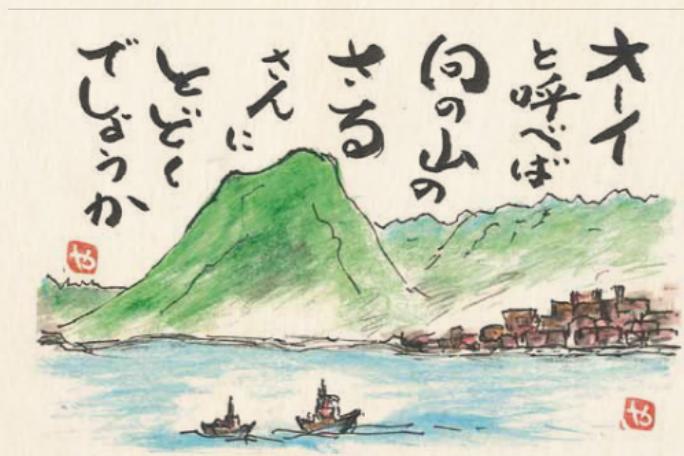 オーイ
と呼べば
向の山の
さる
さんに
とどく
でしょうか
や
や